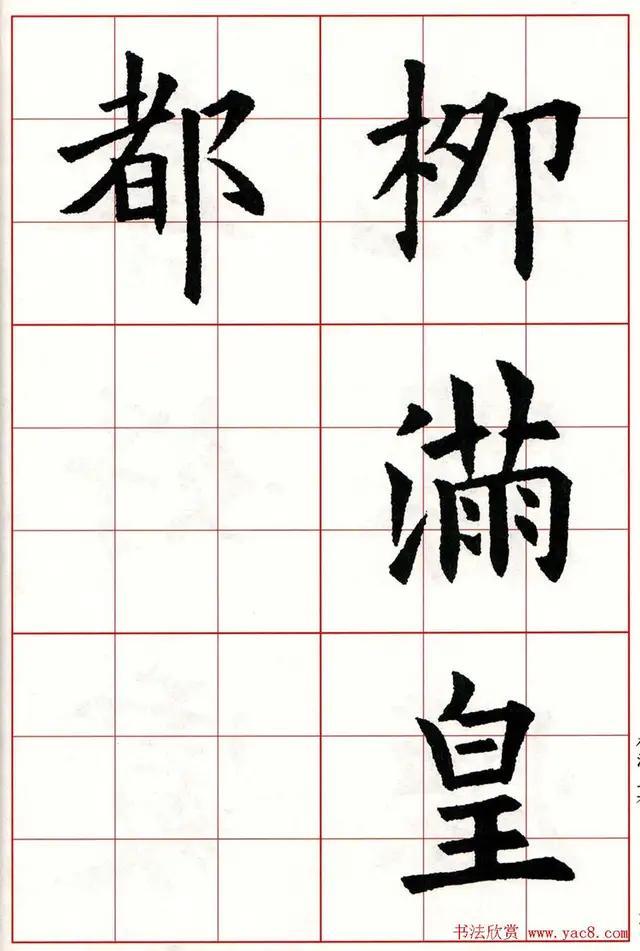 柳滿皇
都
书法欣赏 www.yac8.com